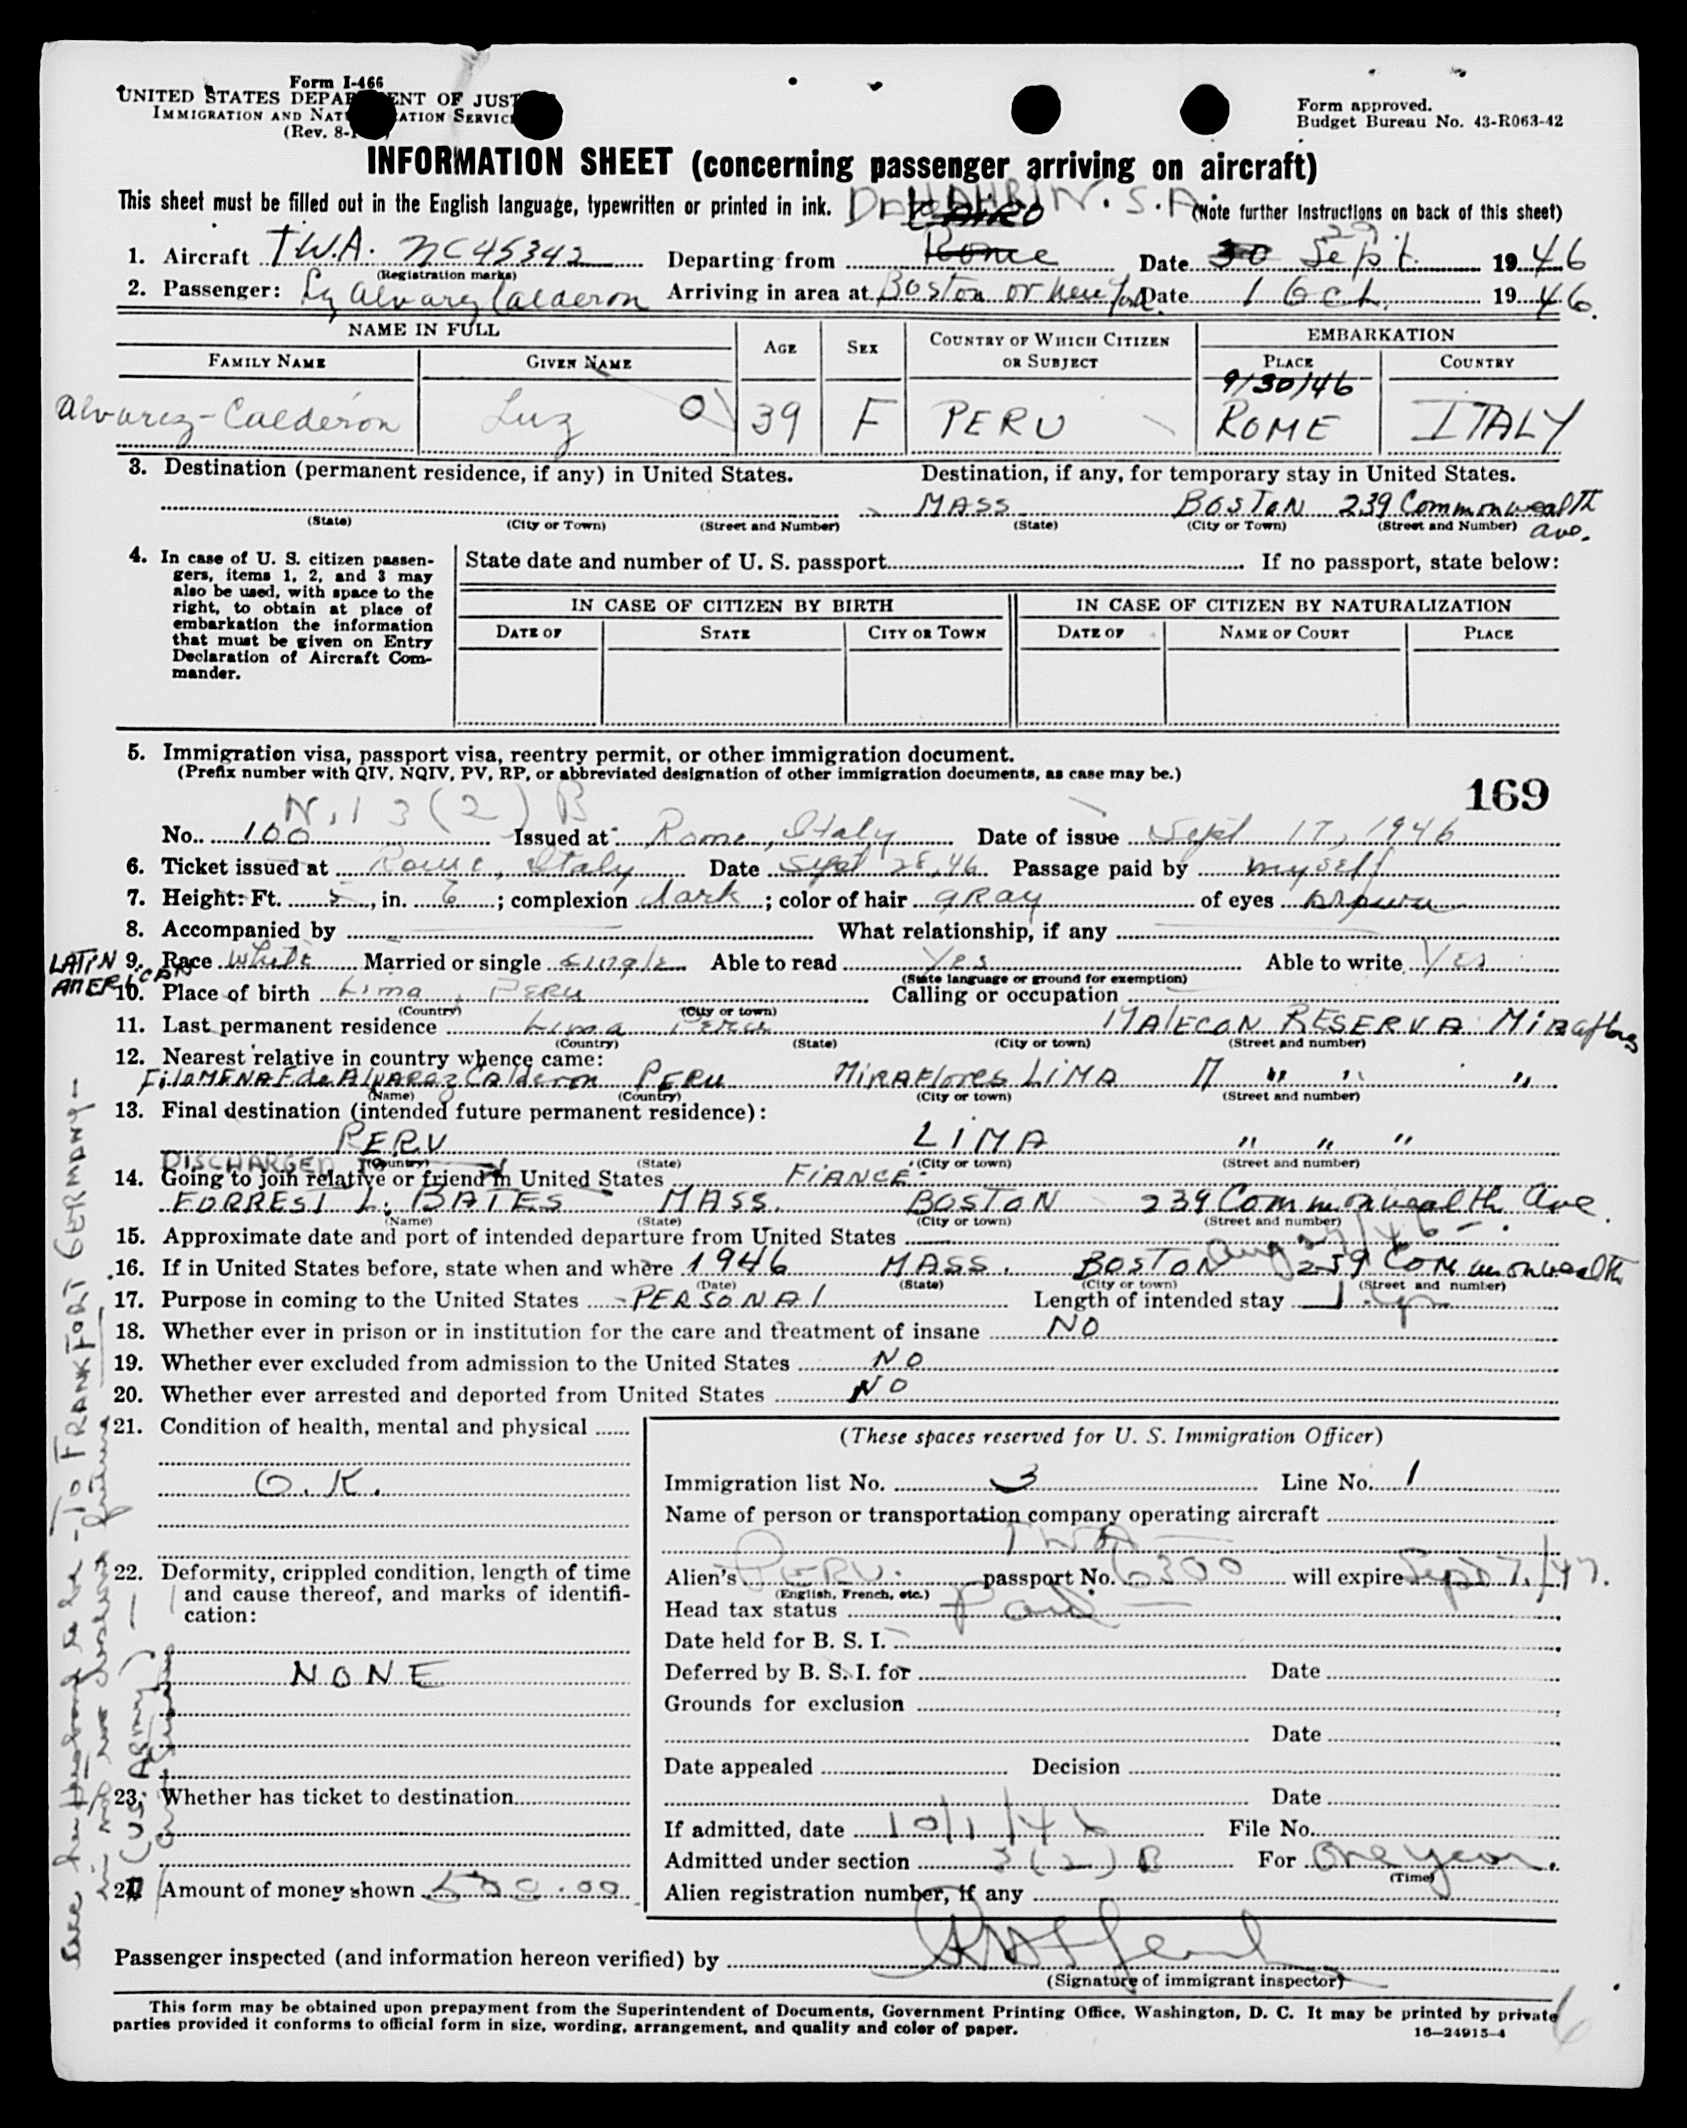 Form I-466
UNITED STATES DEPARTMENT OF JUSTICE
IMMIGRATION AND NATURALIZATION SERVICE
(Rev. 8-
Form approved.
Budget Bureau No. 43-R063-42
INFORMATION SHEET (concerning passenger arriving on aircraft)
This sheet must be filled out in the English language, typewritten or printed in ink. DHAHRAN. S.A. (Note further instructions on back of this sheet)
CAIRO
1. Aircraft T.W.A. NC45342 Departing from Rome Date 30 29 Sept. 1946
(Registration marks)
2. Passenger: Luz Alvarez Calderon Arriving in area at Boston or New York Date 1 Oct. 1946.
NAME IN FULL AGE SEX COUNTRY OF WHICH CITIZEN OR SUBJECT EMBARKATION
FAMILY NAME GIVEN NAME PLACE COUNTRY
9/30/46
Alvarez-Calderón Luz 39 F PERU ROME ITALY
3. Destination (permanent residence, if any) in United States. Destination, if any, for temporary stay in United States.
MASS BOSTON 239 Commonwealth Ave.
(State) (City or Town) (Street and Number) (State) (City or Town) (Street and Number)
4. In case of U. S. citizen passengers, items 1, 2, and 3 may also be used, with space to the right, to obtain at place of embarkation the information that must be given on Entry Declaration of Aircraft Commander.
State date and number of U. S. passport If no passport, state below:
IN CASE OF CITIZEN BY BIRTH IN CASE OF CITIZEN BY NATURALIZATION
DATE OF STATE CITY OR TOWN DATE OF NAME OF COURT PLACE
5. Immigration visa, passport visa, reentry permit, or other immigration document.
(Prefix number with QIV, NQIV, PV, RP, or abbreviated designation of other immigration documents, as case may be.)
169
N.I 3(2)B
No. 100 Issued at Rome, Italy Date of issue Sept 17, 1946
6. Ticket issued at Rome, Italy Date Sept 28, 46 Passage paid by myself
7. Height: Ft. 5, in. 6; complexion dark; color of hair gray of eyes brown
8. Accompanied by What relationship, if any
LATIN AMERICAN
9. Race White Married or single single Able to read Yes Able to write Yes
(State language or ground for exemption)
10. Place of birth Lima, PERU Calling or occupation
(Country) (City or town)
11. Last permanent residence Lima Peru MALECON RESERVA Miraflores
(Country) (State) (City or town) (Street and number)
12. Nearest relative in country whence came:
FiloMENA F. de ALVAREZ CAlderon PERU MIRAFlores LIMA M " " "
(Name) (Country) (City or town) (Street and number)
13. Final destination (intended future permanent residence):
PERU LIMA " " "
(Country) (State) (City or town) (Street and number)
DISCHARGED
14. Going to join relative or friend in United States FIANCE
FORREST L. BATES MASS. BOSTON 239 Commonwealth Ave.
(Name) (State) (City or town) (Street and number)
15. Approximate date and port of intended departure from United States
Aug 27/46
16. If in United States before, state when and where 1946 MASS. BOSTON 239 Commonwealth
(Date) (State) (City or town) (Street and number)
17. Purpose in coming to the United States PERSONAL Length of intended stay 1 yr
18. Whether ever in prison or in institution for the care and treatment of insane NO
19. Whether ever excluded from admission to the United States NO
20. Whether ever arrested and deported from United States NO
21. Condition of health, mental and physical
O.K.
22. Deformity, crippled condition, length of time and cause thereof, and marks of identification:
NONE
23. Whether has ticket to destination
24 Amount of money shown 500.00
(These spaces reserved for U. S. Immigration Officer)
Immigration list No. 3 Line No. 1
Name of person or transportation company operating aircraft
TWA
Alien's PERU. passport No. 6300 will expire Sept 7, /47.
(English, French, etc.)
Head tax status Paid
Date held for B. S. I.
Deferred by B. S. I. for Date
Grounds for exclusion
Date
Date appealed Decision
Date
If admitted, date 10/1/46 File No.
Admitted under section 3(2)B For One year.
(Time)
Alien registration number, if any
Passenger inspected (and information hereon verified) by
(Signature of immigrant inspector)
This form may be obtained upon prepayment from the Superintendent of Documents, Government Printing Office, Washington, D. C. It may be printed by private parties provided it conforms to official form in size, wording, arrangement, and quality and color of paper.
16—24915-4
her husband to be - To FRANKFORT GERMANY-
(US ARMY)